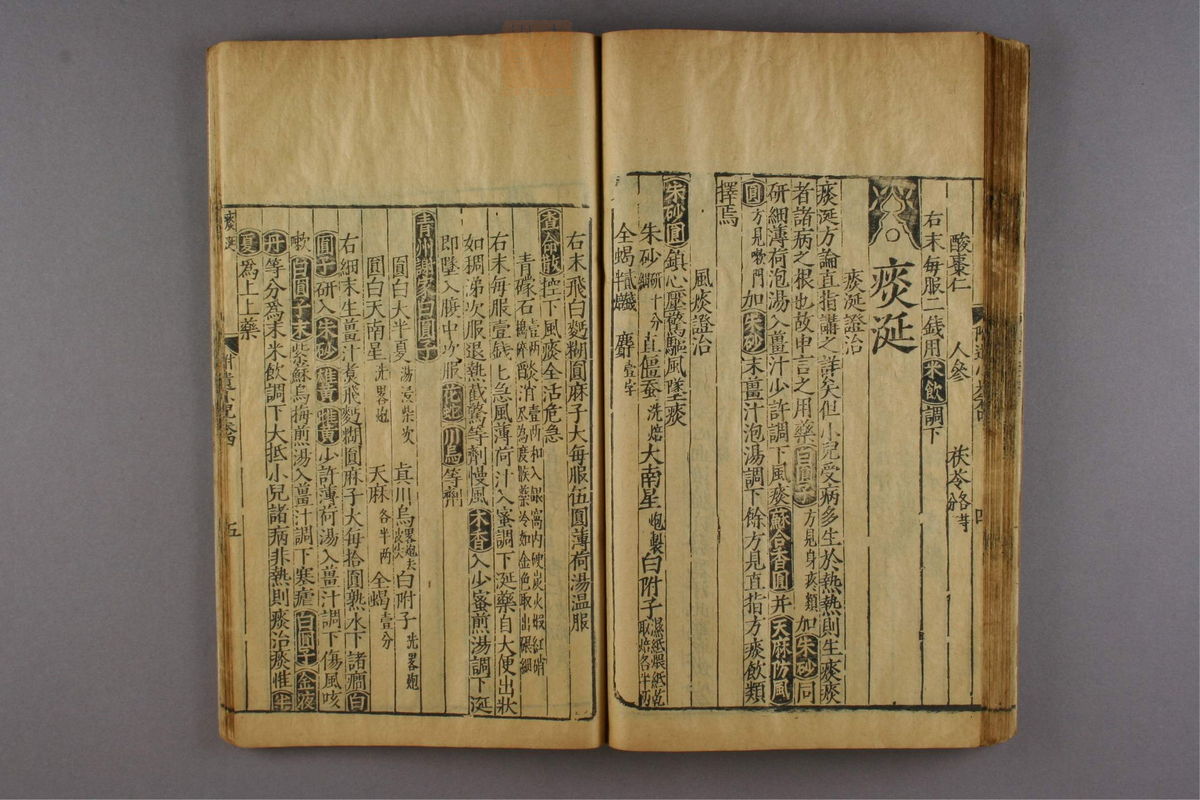 酸棗仁 人參 茯苓各等分
右末每服二錢用米飲調下
痰涎
痰涎證治
痰涎方論直指講之詳矣但小兒受病多生於熱熱則生痰痰
者諸病之根也故申言之用藥白圓子方見身疼類加朱砂同
研細薄荷泡湯入薑汁少許調下風痰蘇合香圓并天麻防風
圓方見嗽門加朱砂末薑汁泡湯調下餘方見直指方痰飲類
擇焉
風痰證治
朱砂圓鎮心壓驚驅風墜痰
朱砂研細十分直僵蚕洗焙大南星炮製白附子濕紙煨紙乾取焙各半兩
全蝎麝壹字
右末飛白麪糊圓麻子大每服伍圓薄荷湯温服
奪命散控下風痰全活危急
青礞石壹兩杵碎焰消壹兩和入磁窩内硬炭火煅紅硝尽為度候藥冷如金色取出碾細
右末每服壹錢匕急風薄荷汁入蜜調下涎藥自大便出狀
如稠涕次服退熱截驚等劑慢風木香入少蜜煎湯調下涎
即墜入腹中次服花蛇川烏等劑
青州謝家白圓子
圓白大半夏湯浸柒次真川烏畧炮去皮尖白附子洗畧炮
圓白天南星洗畧炮天麻各半两全蝎壹分
右細末生薑汁煮飛麪糊圓麻子大每拾圓熟水下諸癇白
圓子研入朱砂雄黃少許薄荷湯入薑汁調下傷風咳
嗽白圓子末紫蘇烏梅煎湯入薑汁調下寒瘧白圓子金液
丹等分為末米飲調下大抵小兒諸病非熱則痰治痰惟半
夏為上上藥
痰涎
五